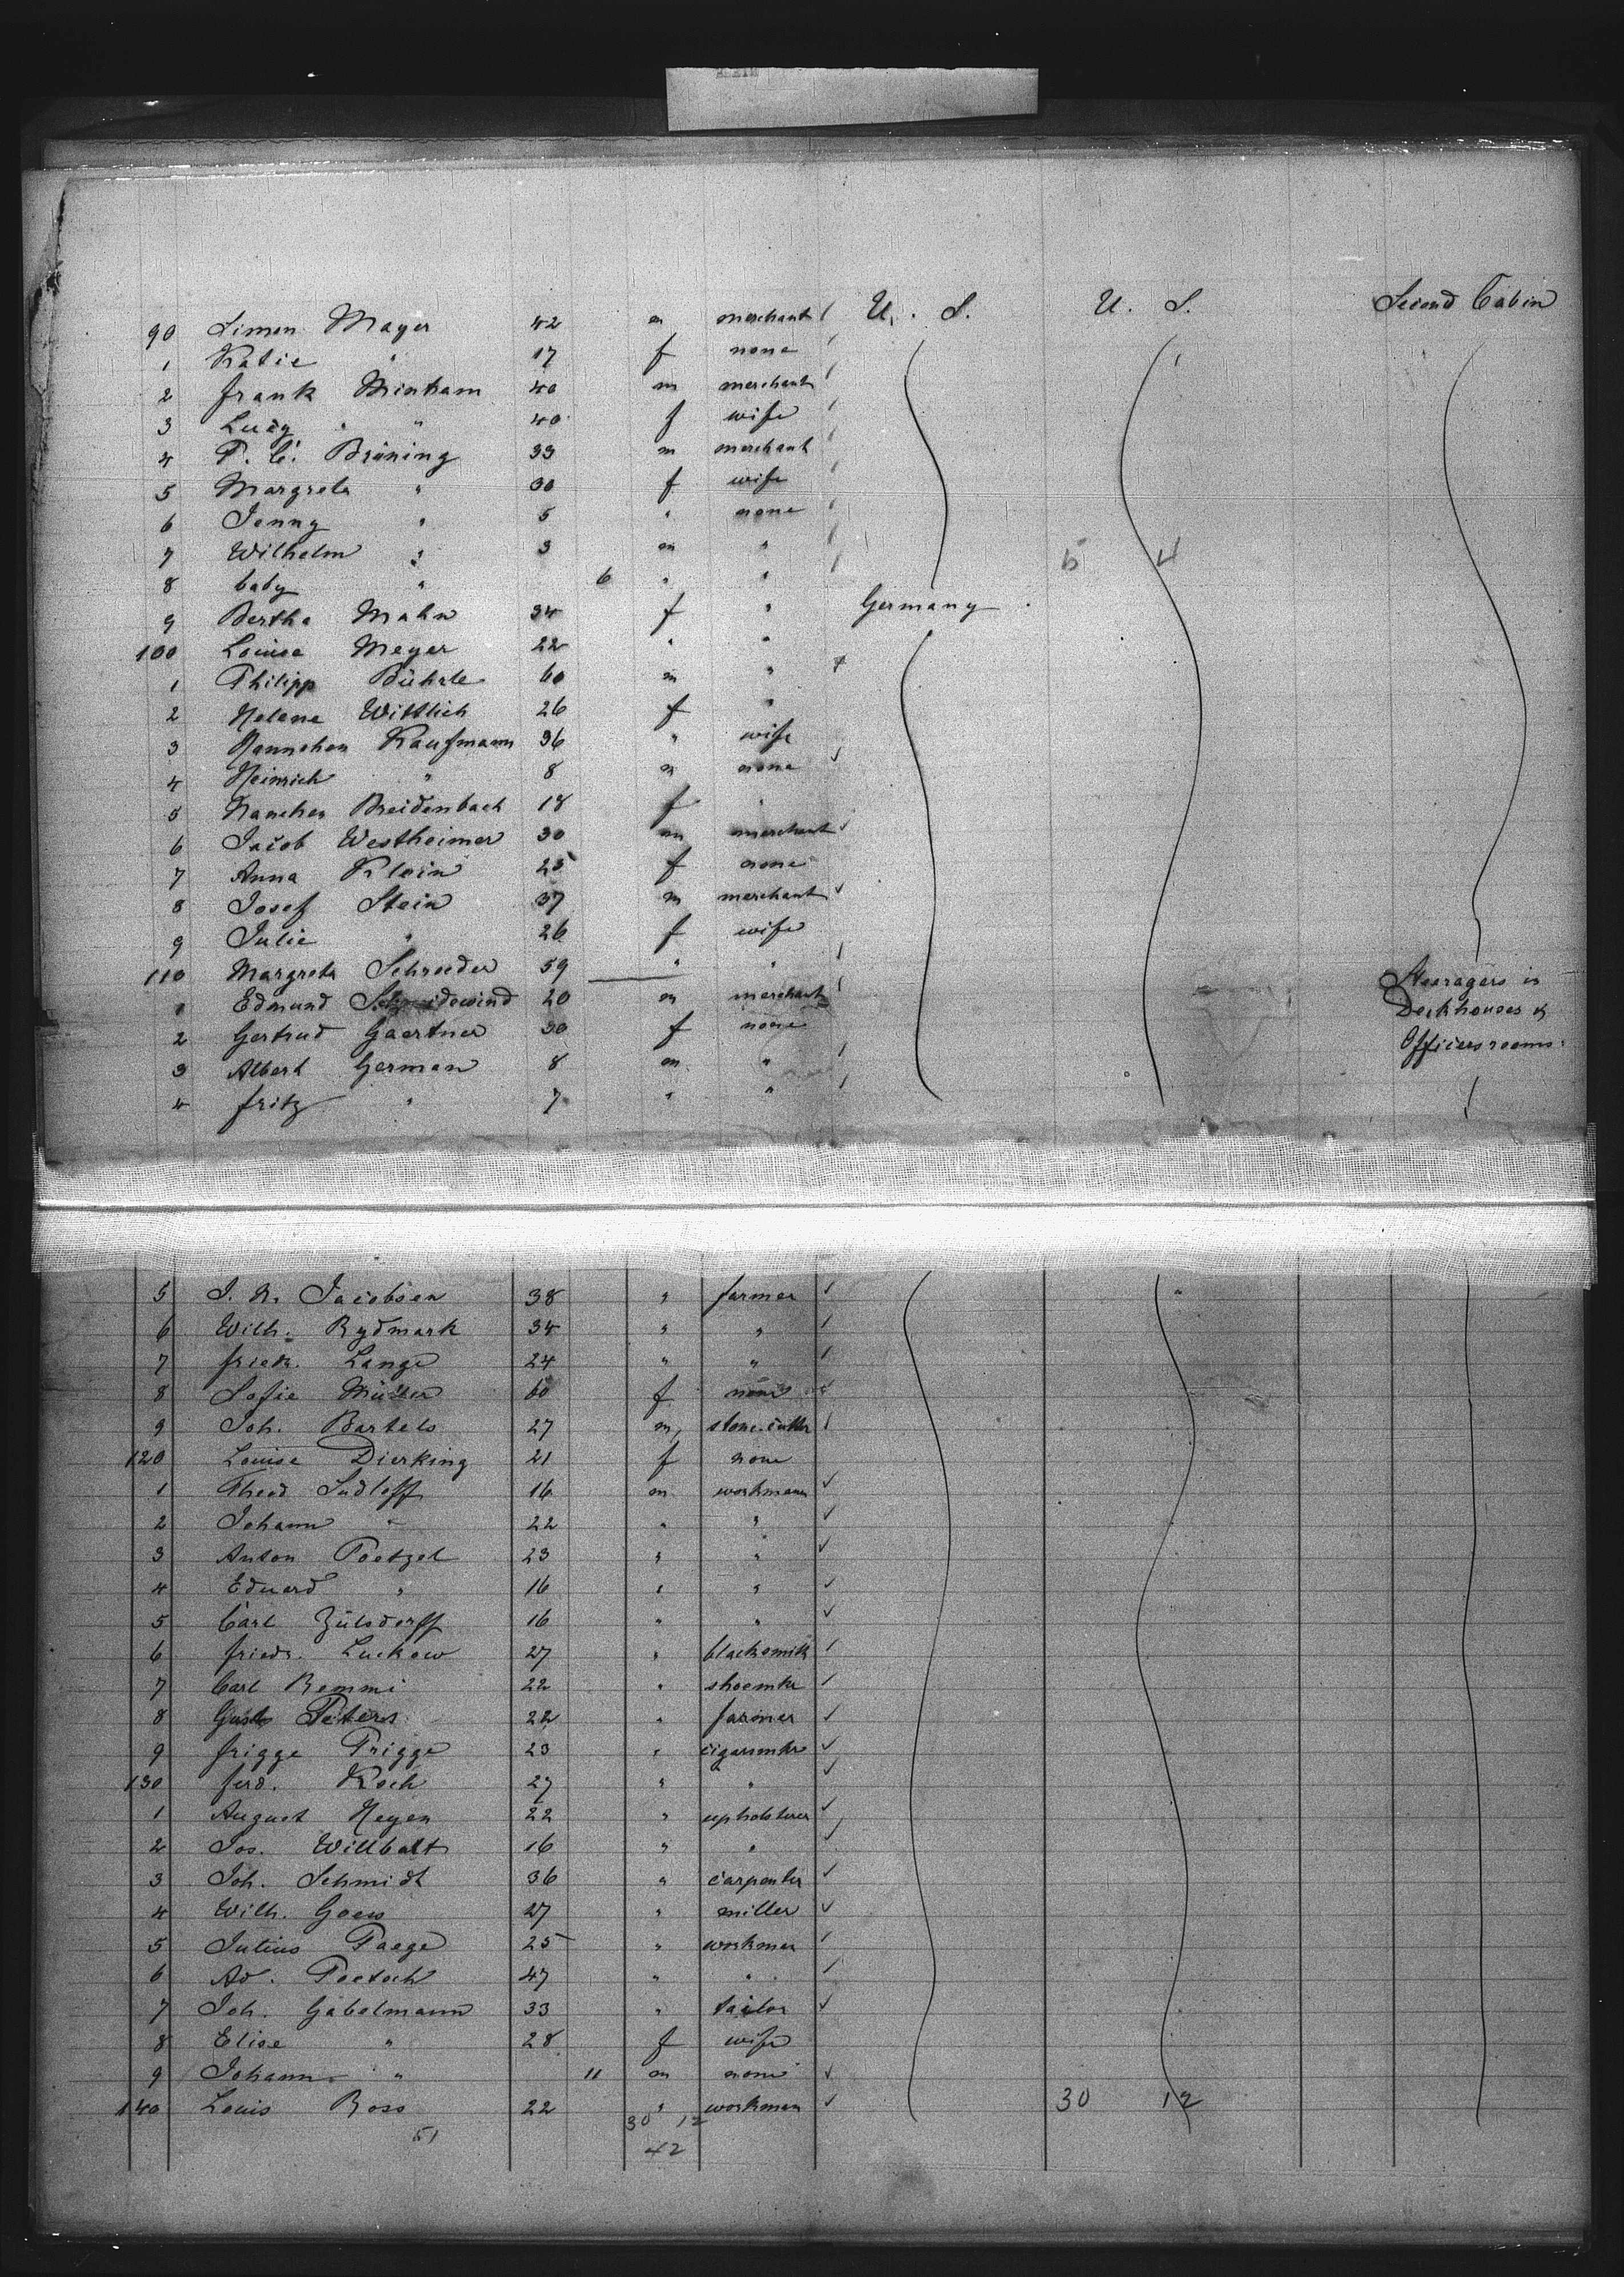 90 Simon Mayer 42 m merchant U. S. U. S. Second Cabin
1 Katie " 17 f none
2 Frank Minkam 40 m merchant
3 Lucy " 40 f wife
4 P. C. Bröning 33 m merchant
5 Margreta " 30 f wife
6 Jenny " 5 " none
7 Wilhelm " 3 m "
8 baby " 6 " "
9 Bertha Mahn 34 f " Germany
100 Louise Meyer 22 " "
1 Philipp Bührle 60 m "
2 Helene Wittlich 26 f "
3 Hannchen Kaufmann 36 " wife
4 Heinrich " 8 m none
5 Nanchen Breidenbach 18 f "
6 Jacob Westheimer 30 m merchant
7 Anna Klein 25 f none
8 Josef Stein 37 m merchant
9 Julie " 26 f wife
110 Margreta Schroeder 59 " " Steeragers in
1 Edmund 20 m merchant Deckhouses &
2 Gertrud Gaertner 30 f none Officiersrooms.
3 Albert German 8 m "
4 Fritz " 7 " "
5 J. N. Jacobsen 38 " farmer
6 Wilh. Rydmark 34 " "
7 Friedr. Lange 24 " "
8 Sofie Müller 60 f none
9 Joh. Bartels 27 m stone-cutter
120 Louise Dierking 21 f none
1 Theod Sudloff 16 m workmann
2 Johann " 22 " "
3 Anton Poetzel 23 " "
4 Eduard " 16 " "
5 Carl Zülsdorff 16 " "
6 Friedr. Luckow 27 " blacksmith
7 Carl Remmi 22 " shoemkr
8 Peters 22 " farmer
9 Frigge Prigge 23 " cigarmkr
130 Ferd. Koch 27 " "
1 August Heyen 22 " upholsterer
2 Jos. Willbalt 16 " "
3 Joh. Schmidt 36 " carpenter
4 Wilh. Goers 27 " miller
5 Julius Paege 25 " workman
6 Ad. Poetsch 47 " "
7 Joh. Gabelmann 33 " tailor
8 Elise " 28 f wife
9 Johann " 11 m none
140 Louis Ross 22 " workman 30 12
51 30 12
42